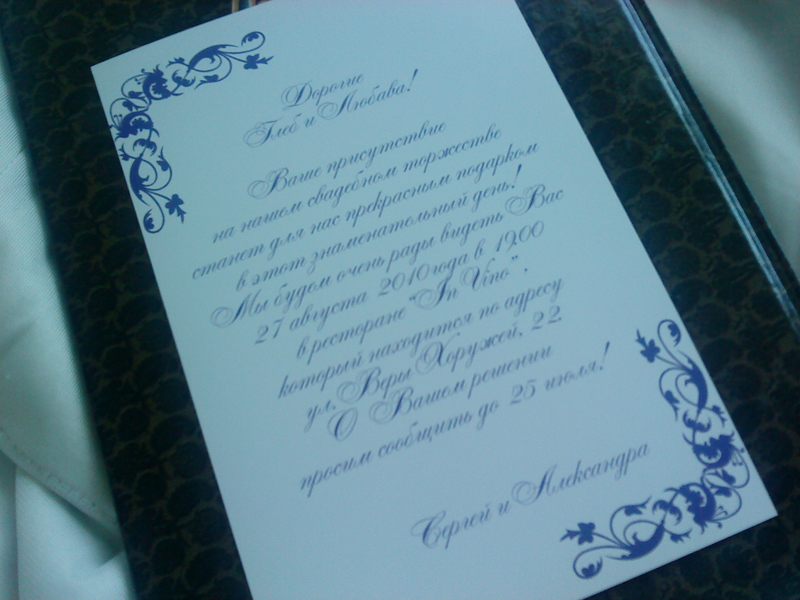 Дорогие
Глеб и Любава!
Ваше присутствие
на нашем свадебном торжестве
станет для нас прекрасным подарком
в этот знаменательный день!
Мы будем очень рады видеть Вас
27 августа 2010 года в 19.00
в ресторане "In Vino",
который находится по адресу
ул. Веры Хоружей, 22.
О Вашем решении
просим сообщить до 25 июля!
Сергей и Александра